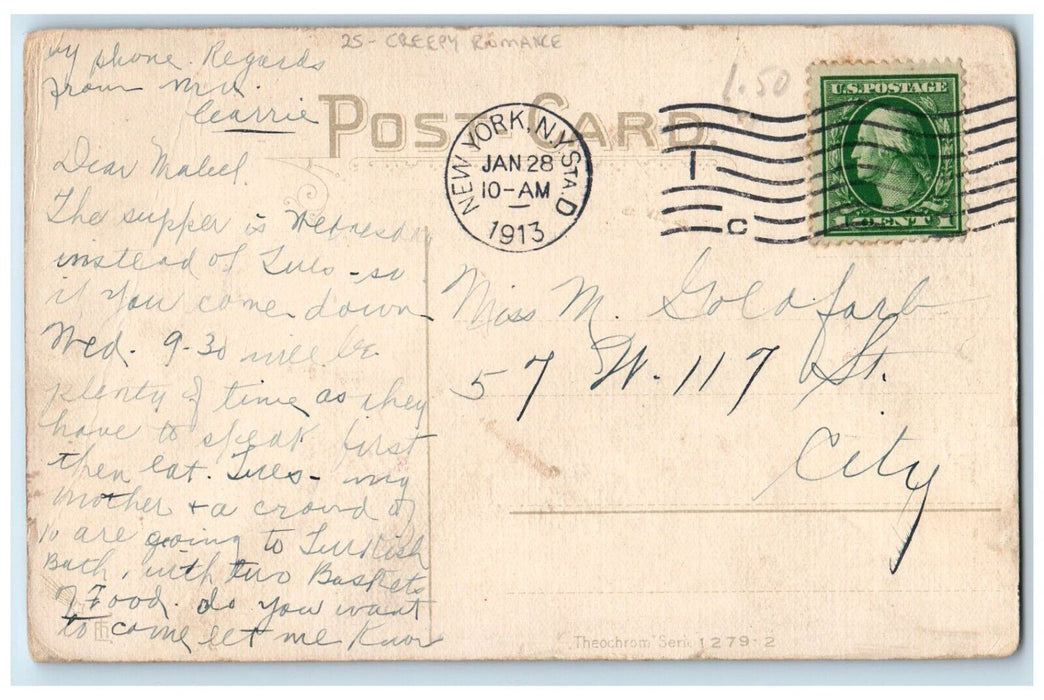 25- CREEPY ROMANCE
1.50
POST CARD.
U.S. POSTAGE
1 CENT 1
NEW YORK, N.Y. STA. D
JAN 28
10-AM
1913
1
C
Dear Mabel.
The supper is Wednesday
instead of Tues - so
if you come down
Wed. 9-30 will be
plenty of time as they
have to speak first
then eat. Tues- my
mother + a crowd of
10 are going to Turkish
Bath, with two Baskets
of Food. do you want
to come let me know
by phone. Regards
from
Carrie
Miss M. Goldfarb
57 W. 117 St.
City
Theochrom Serie 1279-2